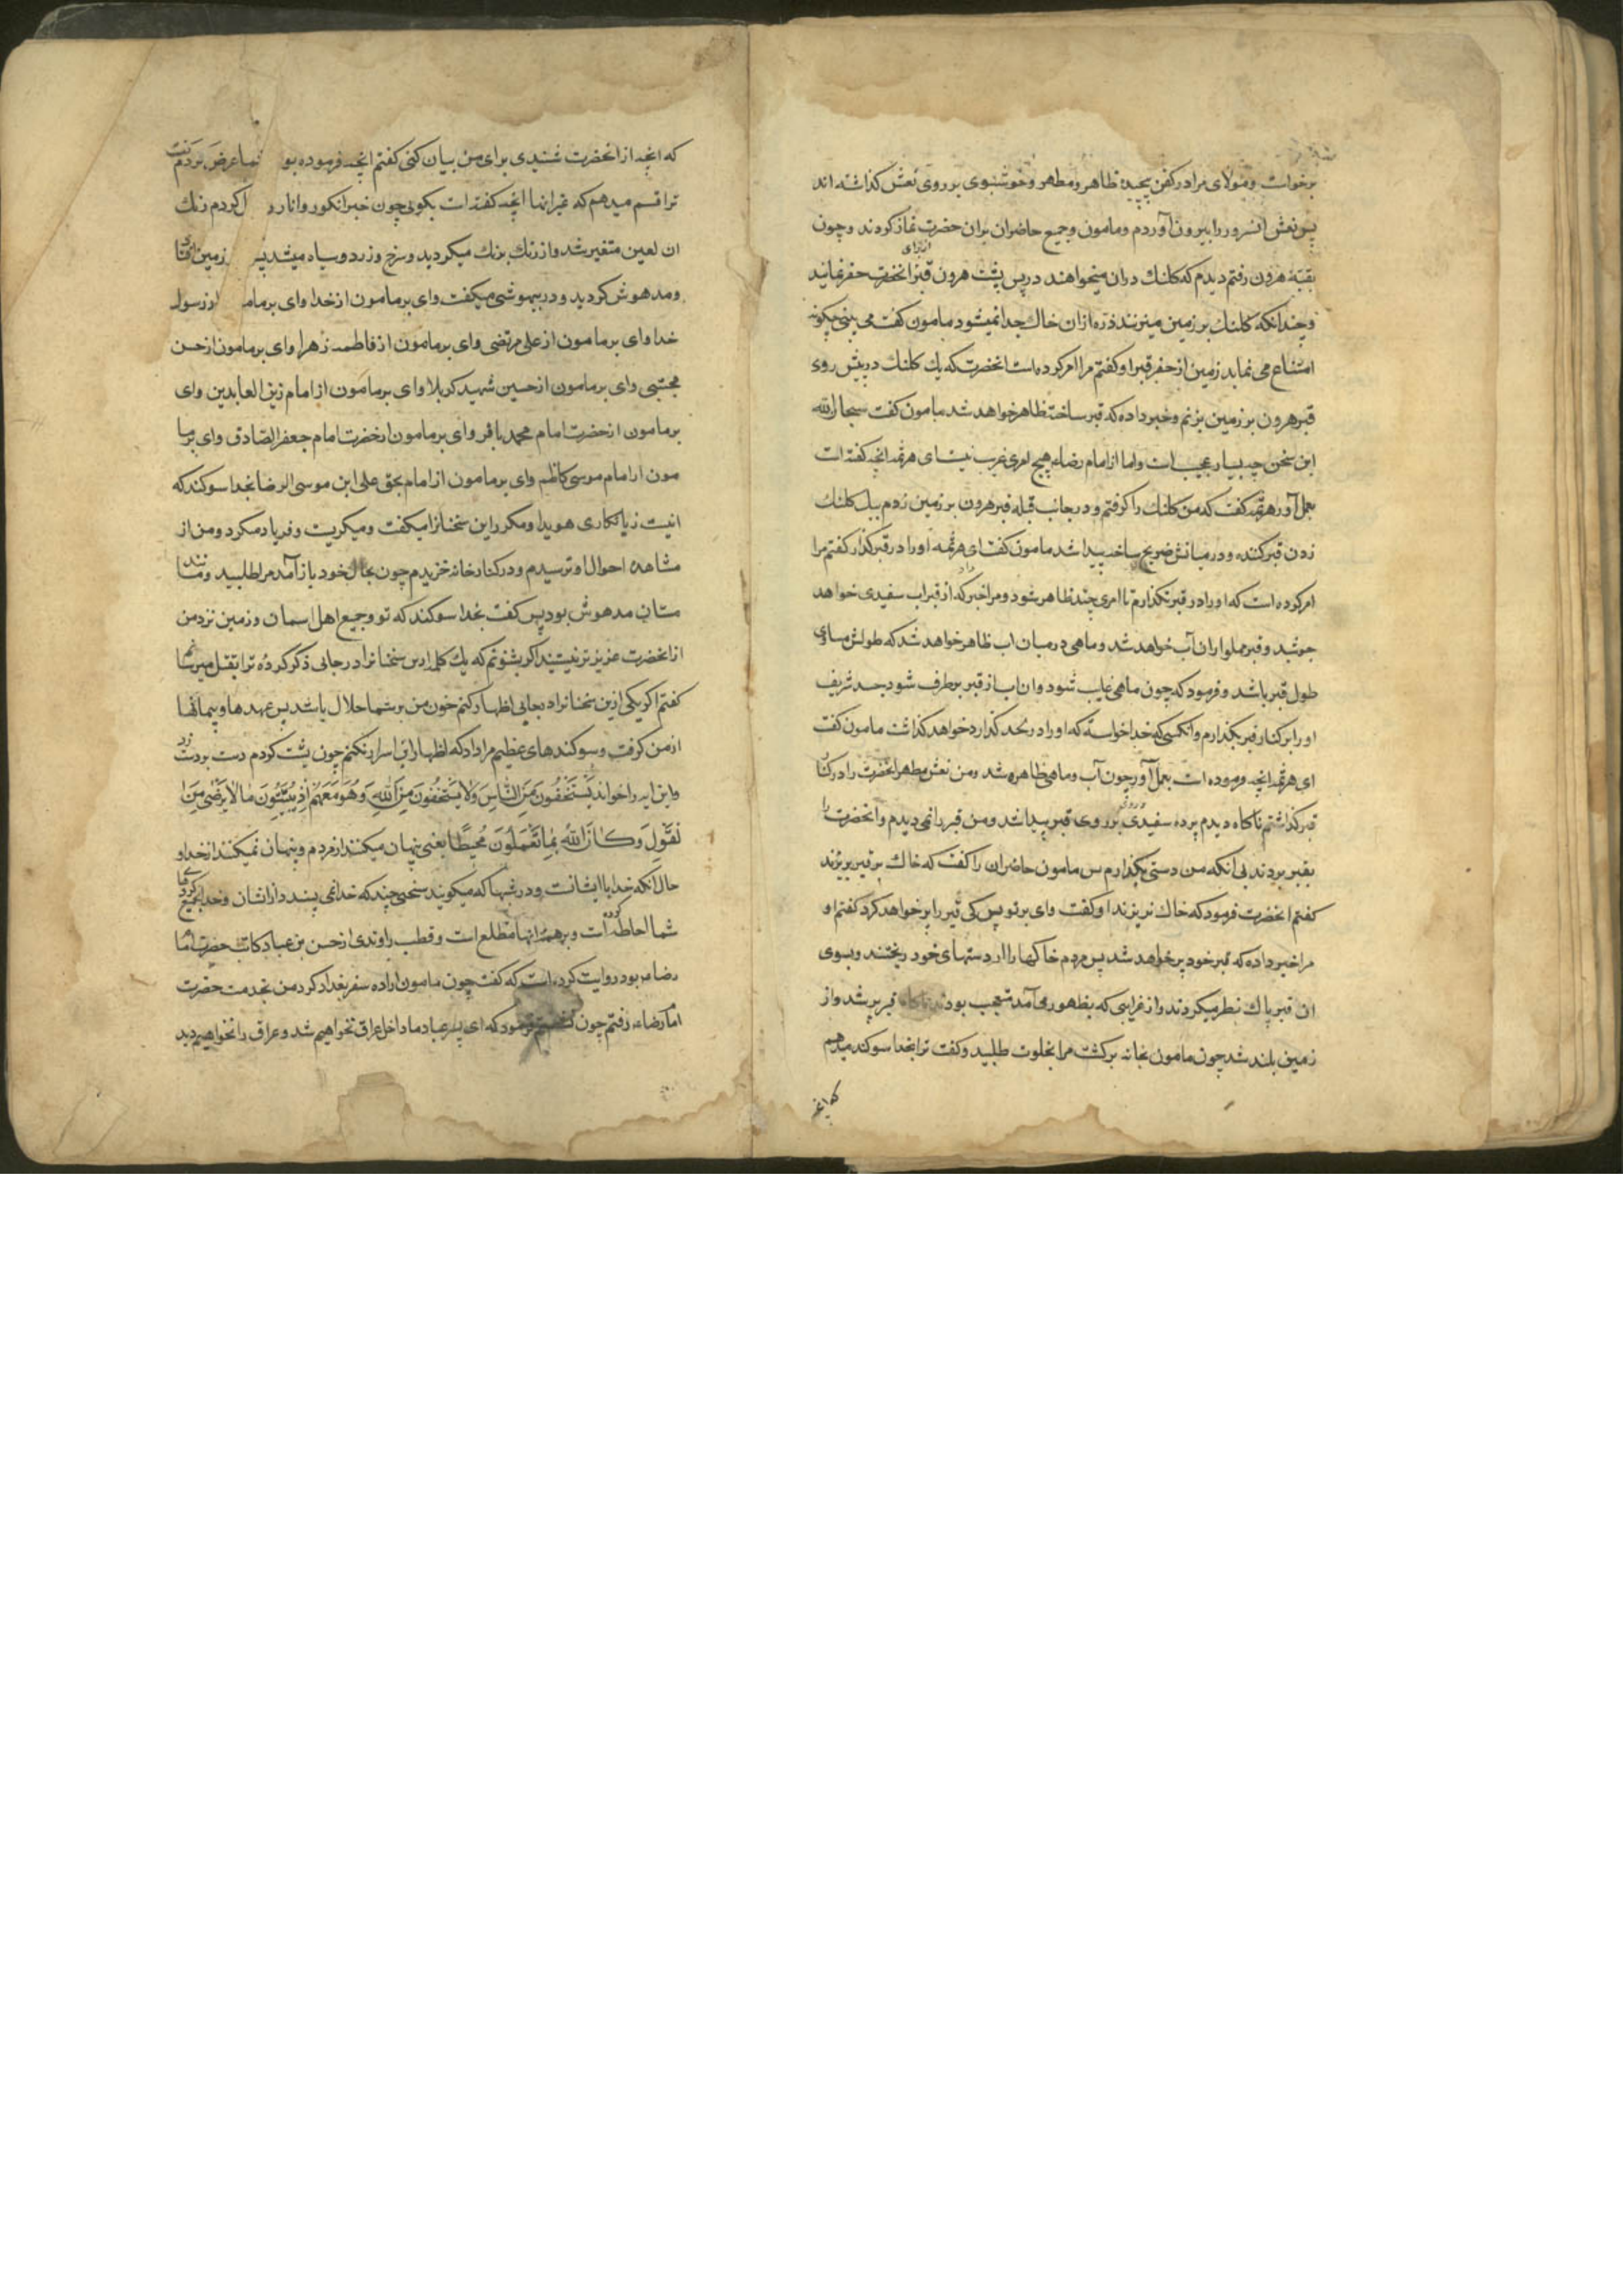 برخواست و مولای مرا در کفن پیچیده طاهر و مطهر و خوشبوی بر روی نعش کذاشته اند
پس نعش انسرور را بیرون آوردم و مامون و جمیع حاضران بران حضرت نماز کردند و چون
بقبّهٔ هرون رفتم دیدم که کلنك دران میخواهند در پس پشت هرون قبر از برای انحضرت حفر نمایند
و چندانکه کلنك بر زمین میزنند ذره ازان خاك جدا نمیشود مامون کفت می بینی چکونه
امتناع می نماید زمین از حفر قبر او کفتم مرا امر کرده است انحضرت که یك کلنك در پیش روی
قبر هرون بر زمین بزنم و خبر داده که قبر ساخته ظاهر خواهد شد مامون کفت سبحان الله
این سخن چه بسیار عجیب است و اما از امام رضاء هیچ امری غریب نیست ای هرثمه انچه کفته است
بعمل آور هرثمه کفت که من کلنك را کرفتم و در جانب قبله قبر هرون بر زمین زدم بیك کلنك
زدن قبر کنده و در میانش ضریح ساخته پیدا شد مامون کفت ای هرثمه او را در قبر کذار کفتم مرا
امر کرده است که او را در قبر نکذارم تا امری چند ظاهر شود و مرا خبر داد که از قبر اب سفیدی خواهد
جوشید و قبر مملو از ان آب خواهد شد و ماهی در میان اب ظاهر خواهد شد که طولش مساوی
طول قبر باشد و فرمود که چون ماهی غایب شود و ان اب از قبر برطرف شود جسد شریف
او را بر کنار قبر بکذارم و انکسی که خدا خواسته که او را در لحد کذارد خواهد کذاشت مامون کفت
ای هرثمه انچه فرموده است بعمل آور چون آب و ماهی ظاهر شد و من نعش مطهر انحضرت را در کنار
قبر کذاشتم ناکاه دیدم پرده سفیدی بر روی قبر پیدا شد و من قبر را نمی دیدم و انحضرت را
بقبر بردند بی انکه من دستی بکذارم پس مامون حاضران را کفت که خاك بر قبر بریزند
کفتم انحضرت فرمود که خاك نریزند او کفت وای بر تو پس کی قبر را پر خواهد کرد کفتم او
مرا خبر داده که قبر خود پر خواهد شد پس مردم خاکها را از دستهای خود ریختند و بسوی
ان قبر پاك نظر میکردند و از غرایبی که بظهور می آمد متعجب بودند ناکاه قبر پر شد و از
زمین بلند شد چون مامون بخانه برکشت مرا بخلوت طلبید و کفت ترا بخدا سوکند میدهم
که انچه
که انچه از انحضرت شنیدی برای من بیان کنی کفتم انچه فرموده بو شما عرض کردم کفت
ترا قسم میدهم که غیر انها انچه کفته است بکوی چون خبر انکور و انار ر ل کردم رنك
ان لعین متغیر شد و از رنك برنك میکردید و سرخ و زرد و سیاه میشد پس زمین افتاد
و مدهوش کردید و در بیهوشی میکفت وای بر مامون از خدا وای بر مامو از رسول
خدا وای بر مامون از علی مرتضی وای بر مامون از فاطمه زهرا وای بر مامون از حسن
مجتبی وای بر مامون از حسین شهید کربلا وای بر مامون از امام زین العابدین وای
بر مامون از حضرت امام محمد باقر وای بر مامون از حضرت امام جعفر الصّادق وای بر ما
مون از امام موسی کاظم وای بر مامون از امام بحق علی ابن موسی الرضا بخدا سوکند که
اینست زیانکاری هویدا و مکرر این سخنانرا میکفت و میکریست و فریاد میکرد و من از
مشاهده احوال او ترسیدم و در کنار خانه خزیدم چون بحال خود باز آمد مرا طلبید و مانند
مستان مدهوش بود پس کفت بخدا سوکند که تو و جمیع اهل اسمان و زمین نزد من
از انحضرت عزیز تر نیستند اکر بشنوم که یك کلمه ازین سخنانرا در جایی ذکر کردهٔ ترا بقتل میرسانم
کفتم اکر یکی ازین سخنانرا در جایی اظهار کنم خون من بر شما حلال باشد پس عهدها و پیمانها
از من کرفت و سوکندهای عظیم مرا داد که اظهار این اسرار نکنم چون پشت کردم دست بر دست زد
و این ایه را خواند یَسْتَخْفُونَ مِنَ النّاسِ وَلا یَسْتَخْفُونَ مِنَ اللهِ وَهُوَ مَعَهُمْ اِذْ یُبَیِّتُونَ مالا یَرْضٰی مِنَ ا
لْقَوْلِ وَکانَ اللهُ بِما تَعْمَلُونَ مُحیطًا یعنی پنهان میکنند از مردم و پنهان نمیکنند از خدا و
حال آنکه خدا با ایشانست و در شبها که میکویند سخنی چند که خدا نمی پسندد از ایشان و خدا بجمیع کردهای
شما احاطه کرده است و بر همهٔ انها مطلع است و قطب راوندی از حسن بن عباد کاتب حضرت امام
رضا بود روایت کرده است که کفت چون مامون اراده سفر بغداد کرد من بخدمت حضرت
امام رضاء رفتم چون نشستم فرمود که ای پسر عباد ما داخل عراق نخواهیم شد و عراق را نخواهیم دید